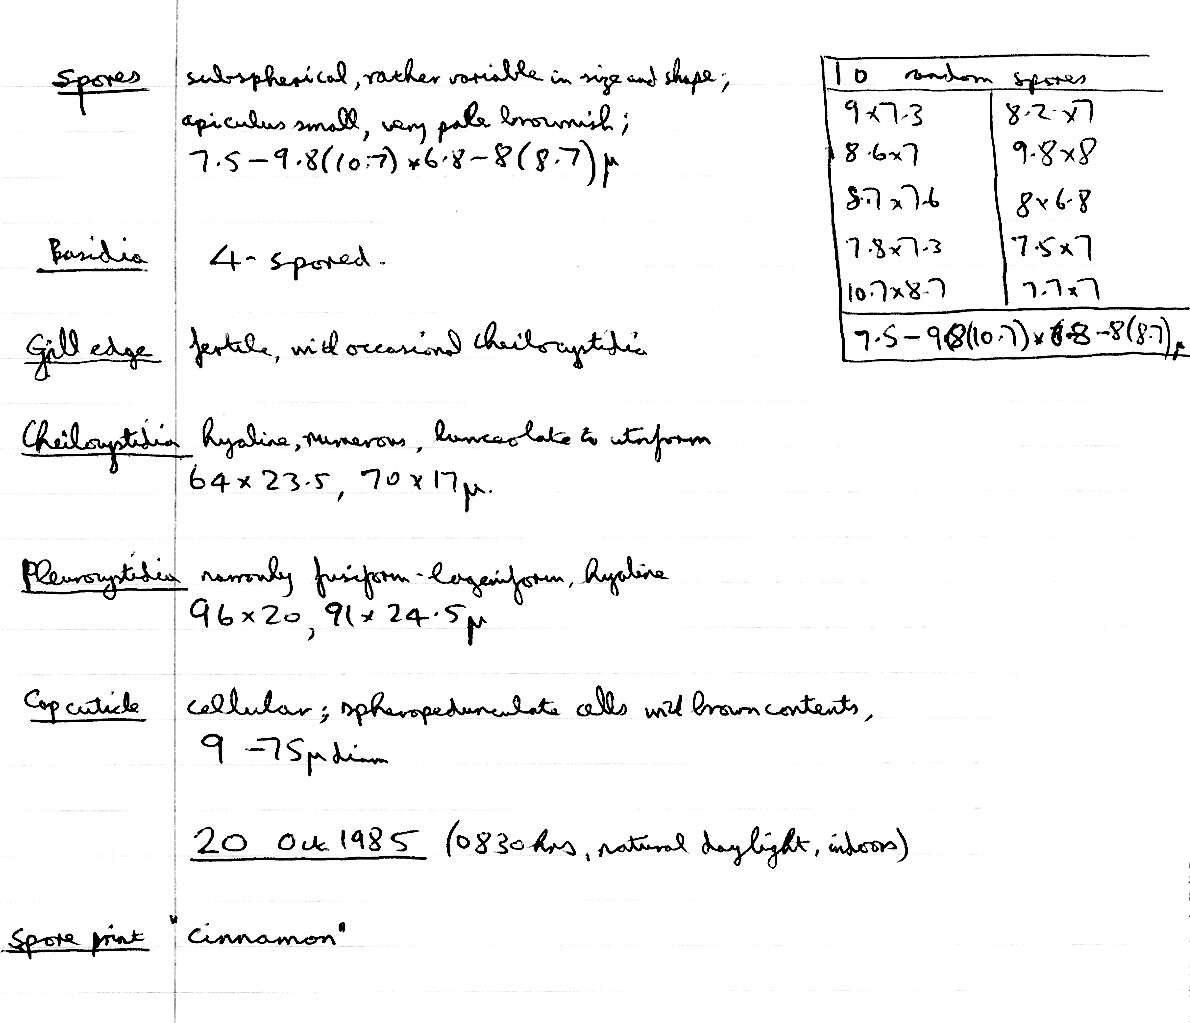 Spores subspherical, rather variable in size and shape;
apiculus small, very pale brownish;
7.5-9.8(10.7)×6.8-8(8.7)μ
Basidia 4-spored.
Gill edge fertile, with occasional cheilocystidia
Cheilocystidia hyaline, numerous, lanceolate to utriform
64×23.5, 70×17μ.
Pleurocystidia narrowly fusiform-lageniform, hyaline
96×20, 91×24.5μ
Cap cuticle cellular; spheropedunculate cells with brown contents,
9-75μ diam
20 Oct 1985 (0830hrs, natural daylight, indoors)
Spore print "cinnamon"
10 random spores
9×7.3 8.2×7
8.6×7 9.8×8
8.7×7.6 8×6.8
7.8×7.3 7.5×7
10.7×8.7 7.7×7
7.5-9.8(10.7)×6.8-8(8.7)μ